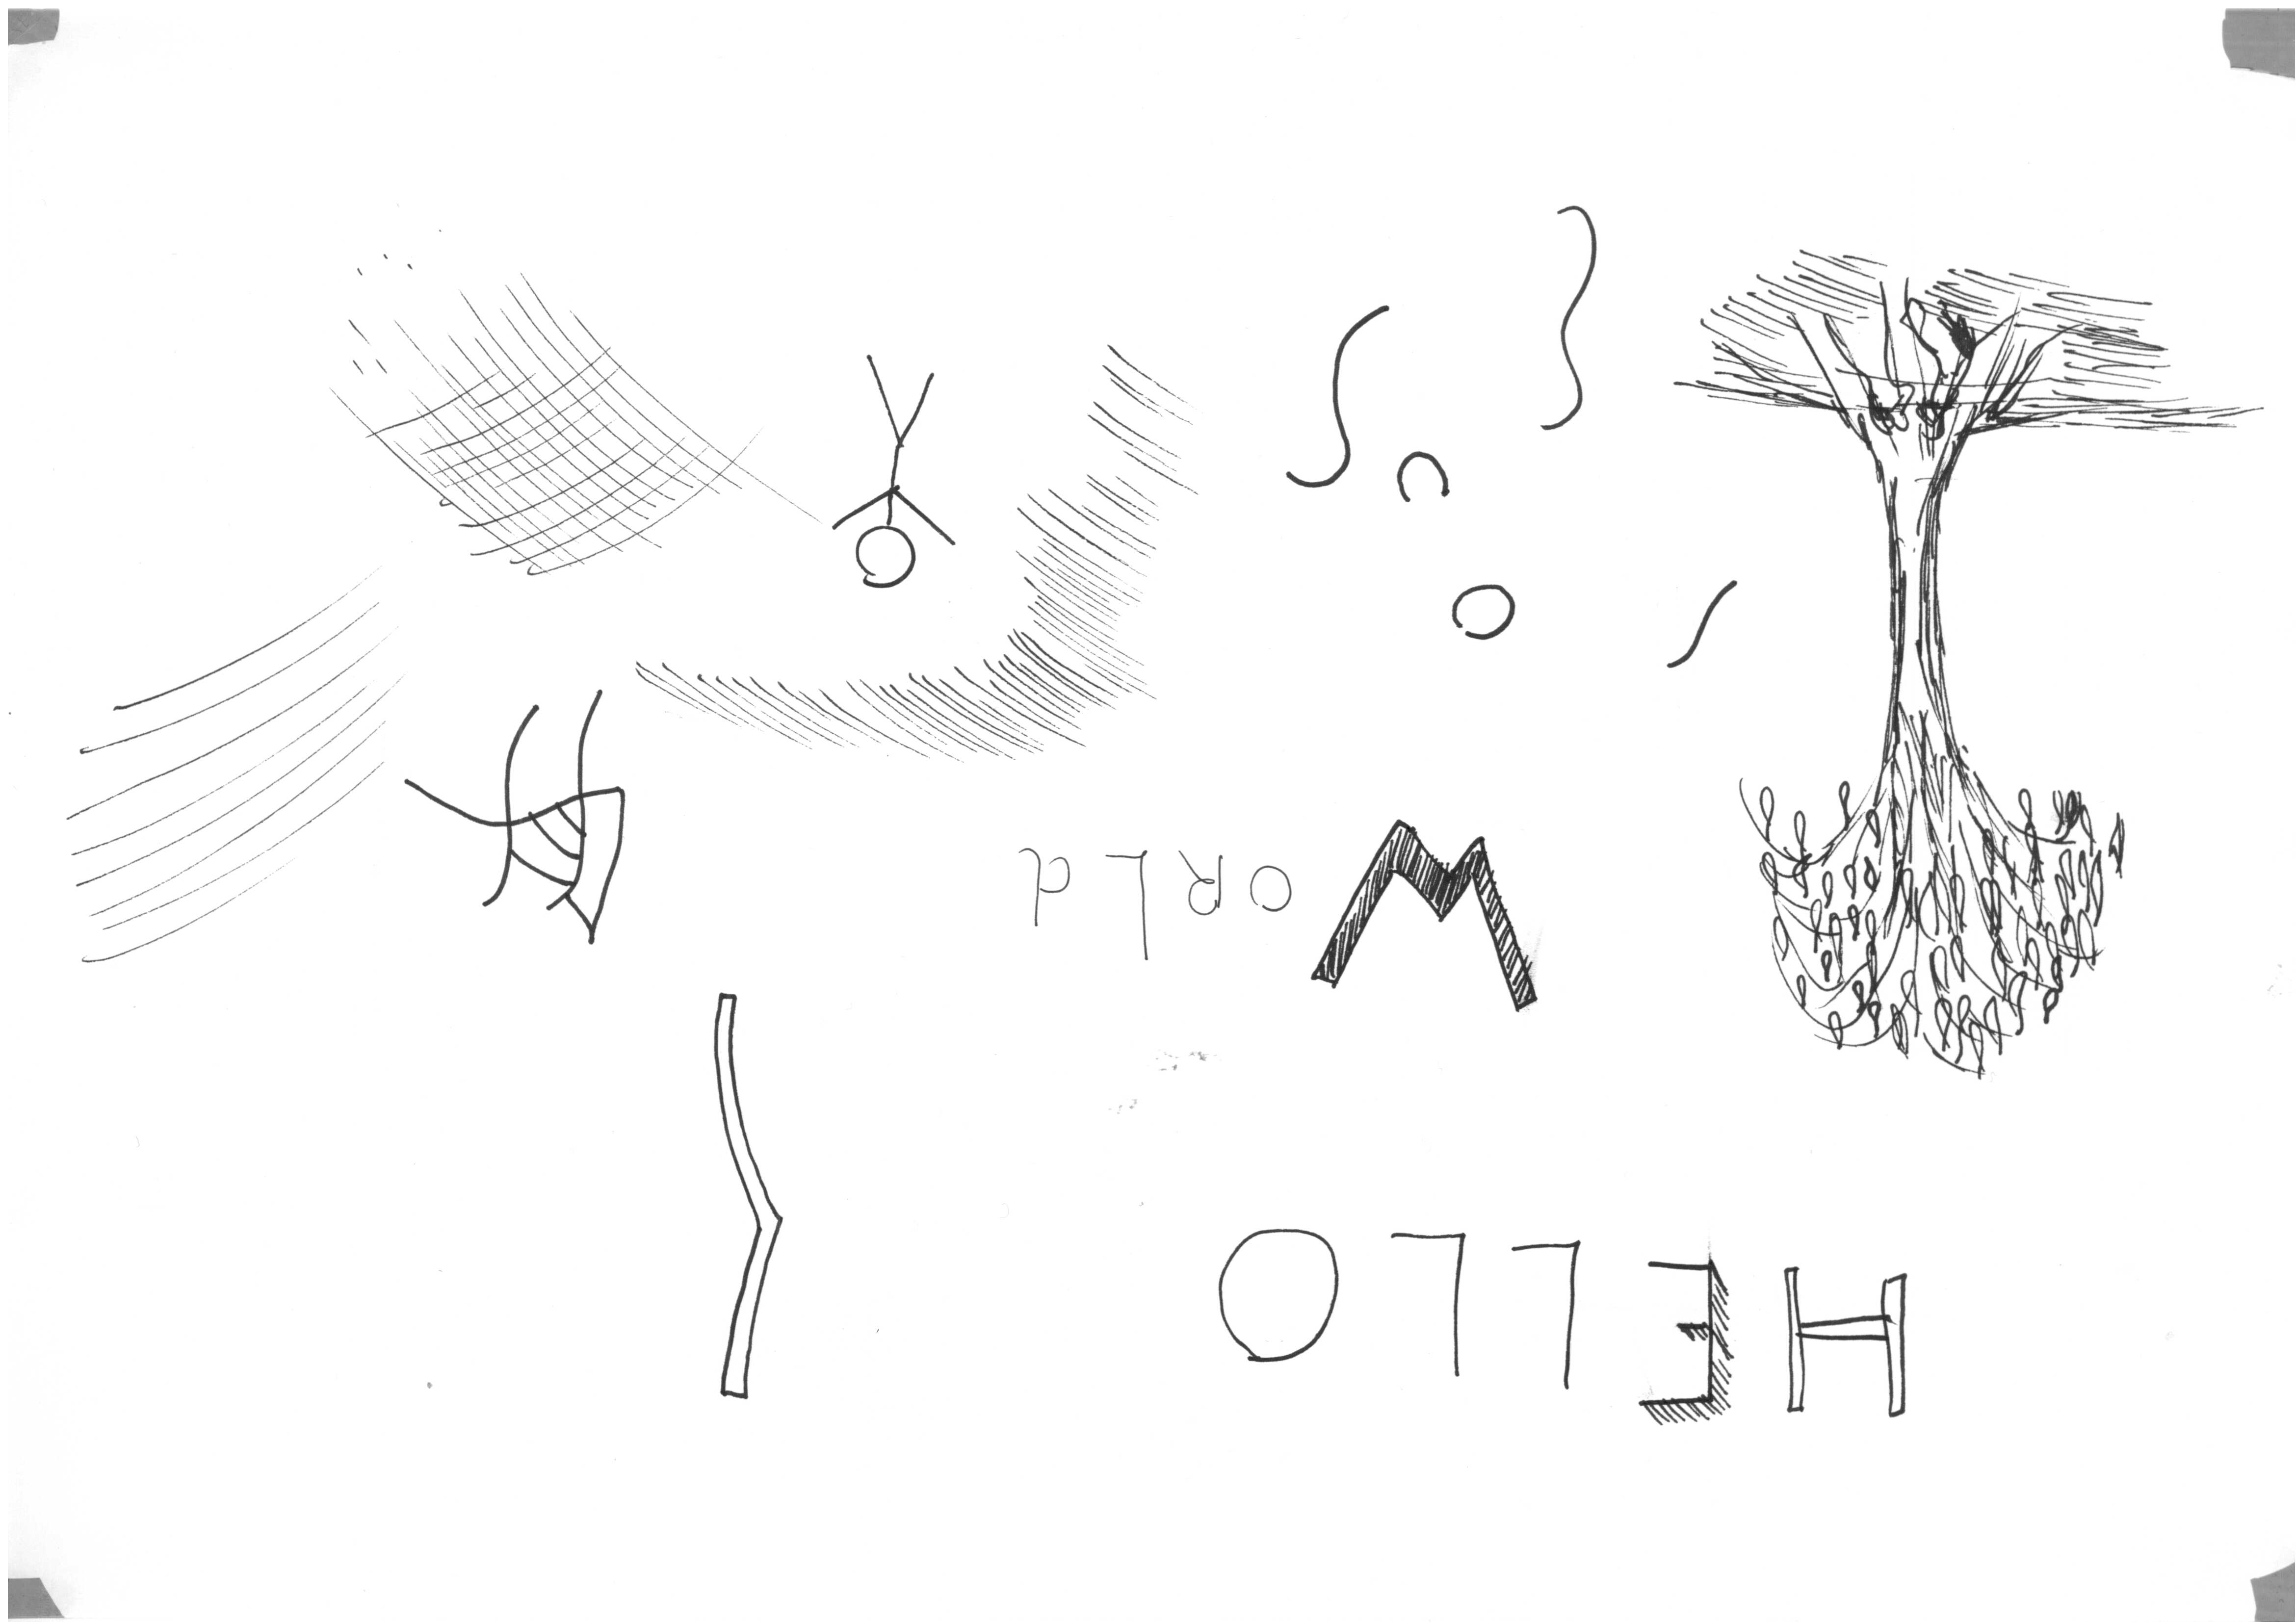 HELLO
WORLd